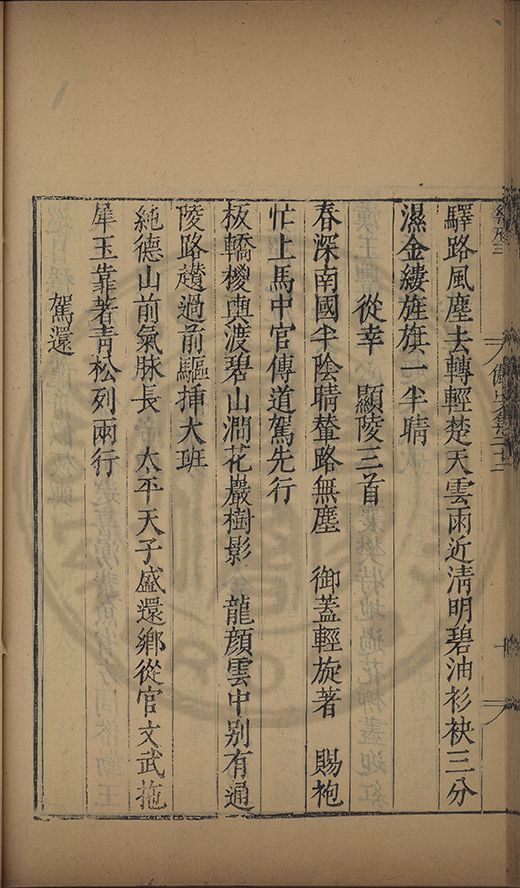 驛路風塵去轉輕楚天雲雨近清明碧油衫袂三分
濕金縷旌旗一半晴
從幸 顯陵三首
春深南國半陰晴輦路無塵 御蓋輕旋著 賜袍
忙上馬中官傳道駕先行
板轎椶輿渡碧山澗花巖樹影 龍顏雲中別有通
陵路趲過前驅揷大班
純德山前氣脉長 太平天子盛還鄉從官文武拖
犀玉靠著青松列兩行
駕還